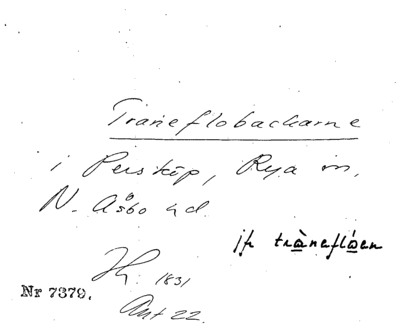 Traneflobackarne
i Perstöp, Rya sn,
N. Åsbo hd.
jfr trànefló̱en
1831
Nr 7379.
Ant 22.